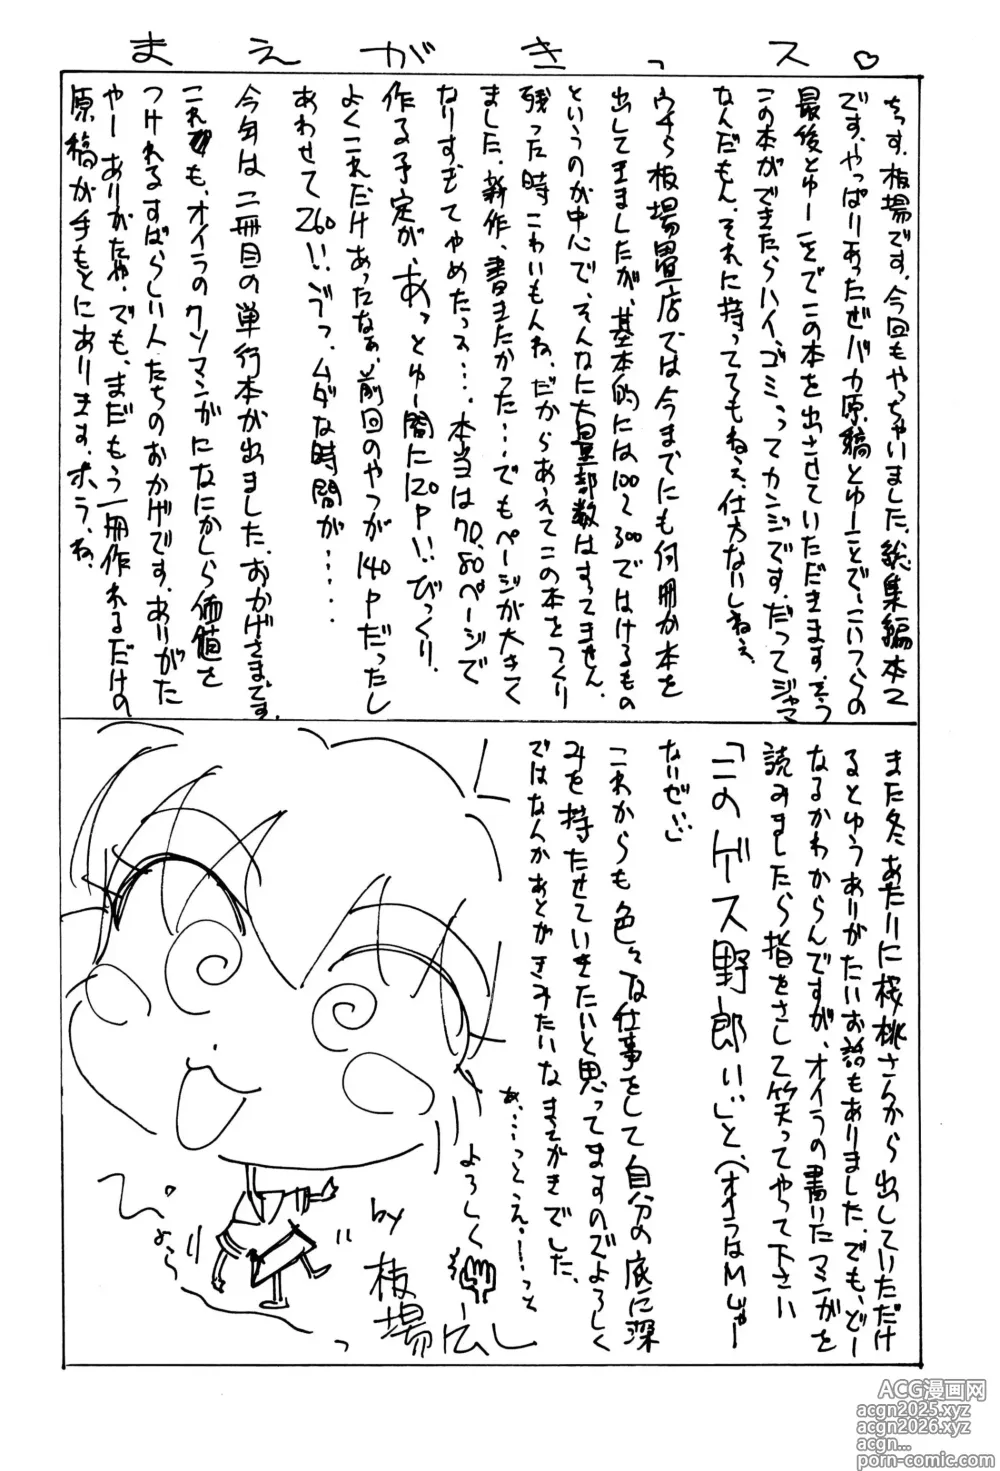 まえがきっス♡
ちっす。板場です。今回もやっちゃいました、総集編本で
です。やっぱりあったぜバカ原稿とゆーことで、こいつらの
最後とゆーことでこの本を出させていただきます。そう
この本ができたらハイ、ゴミってカンジです。だってジャマ
なんだもん。それに持っててもねぇ、仕方ないしねぇ。
ウチら板場畳店では今までにも何冊か本を
出してきましたが、基本的には100〜300ではけるもの
というのが中心で、そんなに大量部数はすってません。
残った時こわいもんね。だからあえてこの本をつくり
ました。新作、書きたかった…でもページが大きく
なりすぎてやめたっス…。本当は70、80ページで
作る予定が、あっとゆー間に120P!!びっくり。
よくこれだけあったなぁ、前回のやつが140Pだったし
あわせて260!!ゾゾっ、ムダな時間が……
今年は二冊目の単行本が出ました。おかげさまです。
これでも、オイラのクソマンガになにかしら価値を
つけれるすばらしい人たちのおかげです。ありがた
やーありがたや。でも、まだもう一冊作れるだけの
原稿が手もとにあります。ホラ、ね。
また冬あたりに桜桃さんから出していただけ
るとゆうありがたいお話もありました。でも、どー
なるかわからんですが、オイラの書いたマンガを
読みましたら指をさして笑ってやって下さい
「このゲス野郎い」と、(オイラはMじゃー
ないぜい)
これからも色々な仕事をして自分の底に深
みを持たせていきたいと思ってますのでよろしく
ではなんかあとがきみたいなまえがきでした。
あ、…っとえ、ーっと
よろしく
by
板場広し
ぴょろり
っ
ACG漫画网
acgn2025.xyz
acgn2026.xyz
acgn...
porn-comic.com